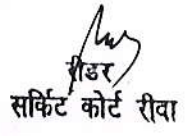 रीडर
सर्किट कोर्ट रीवा